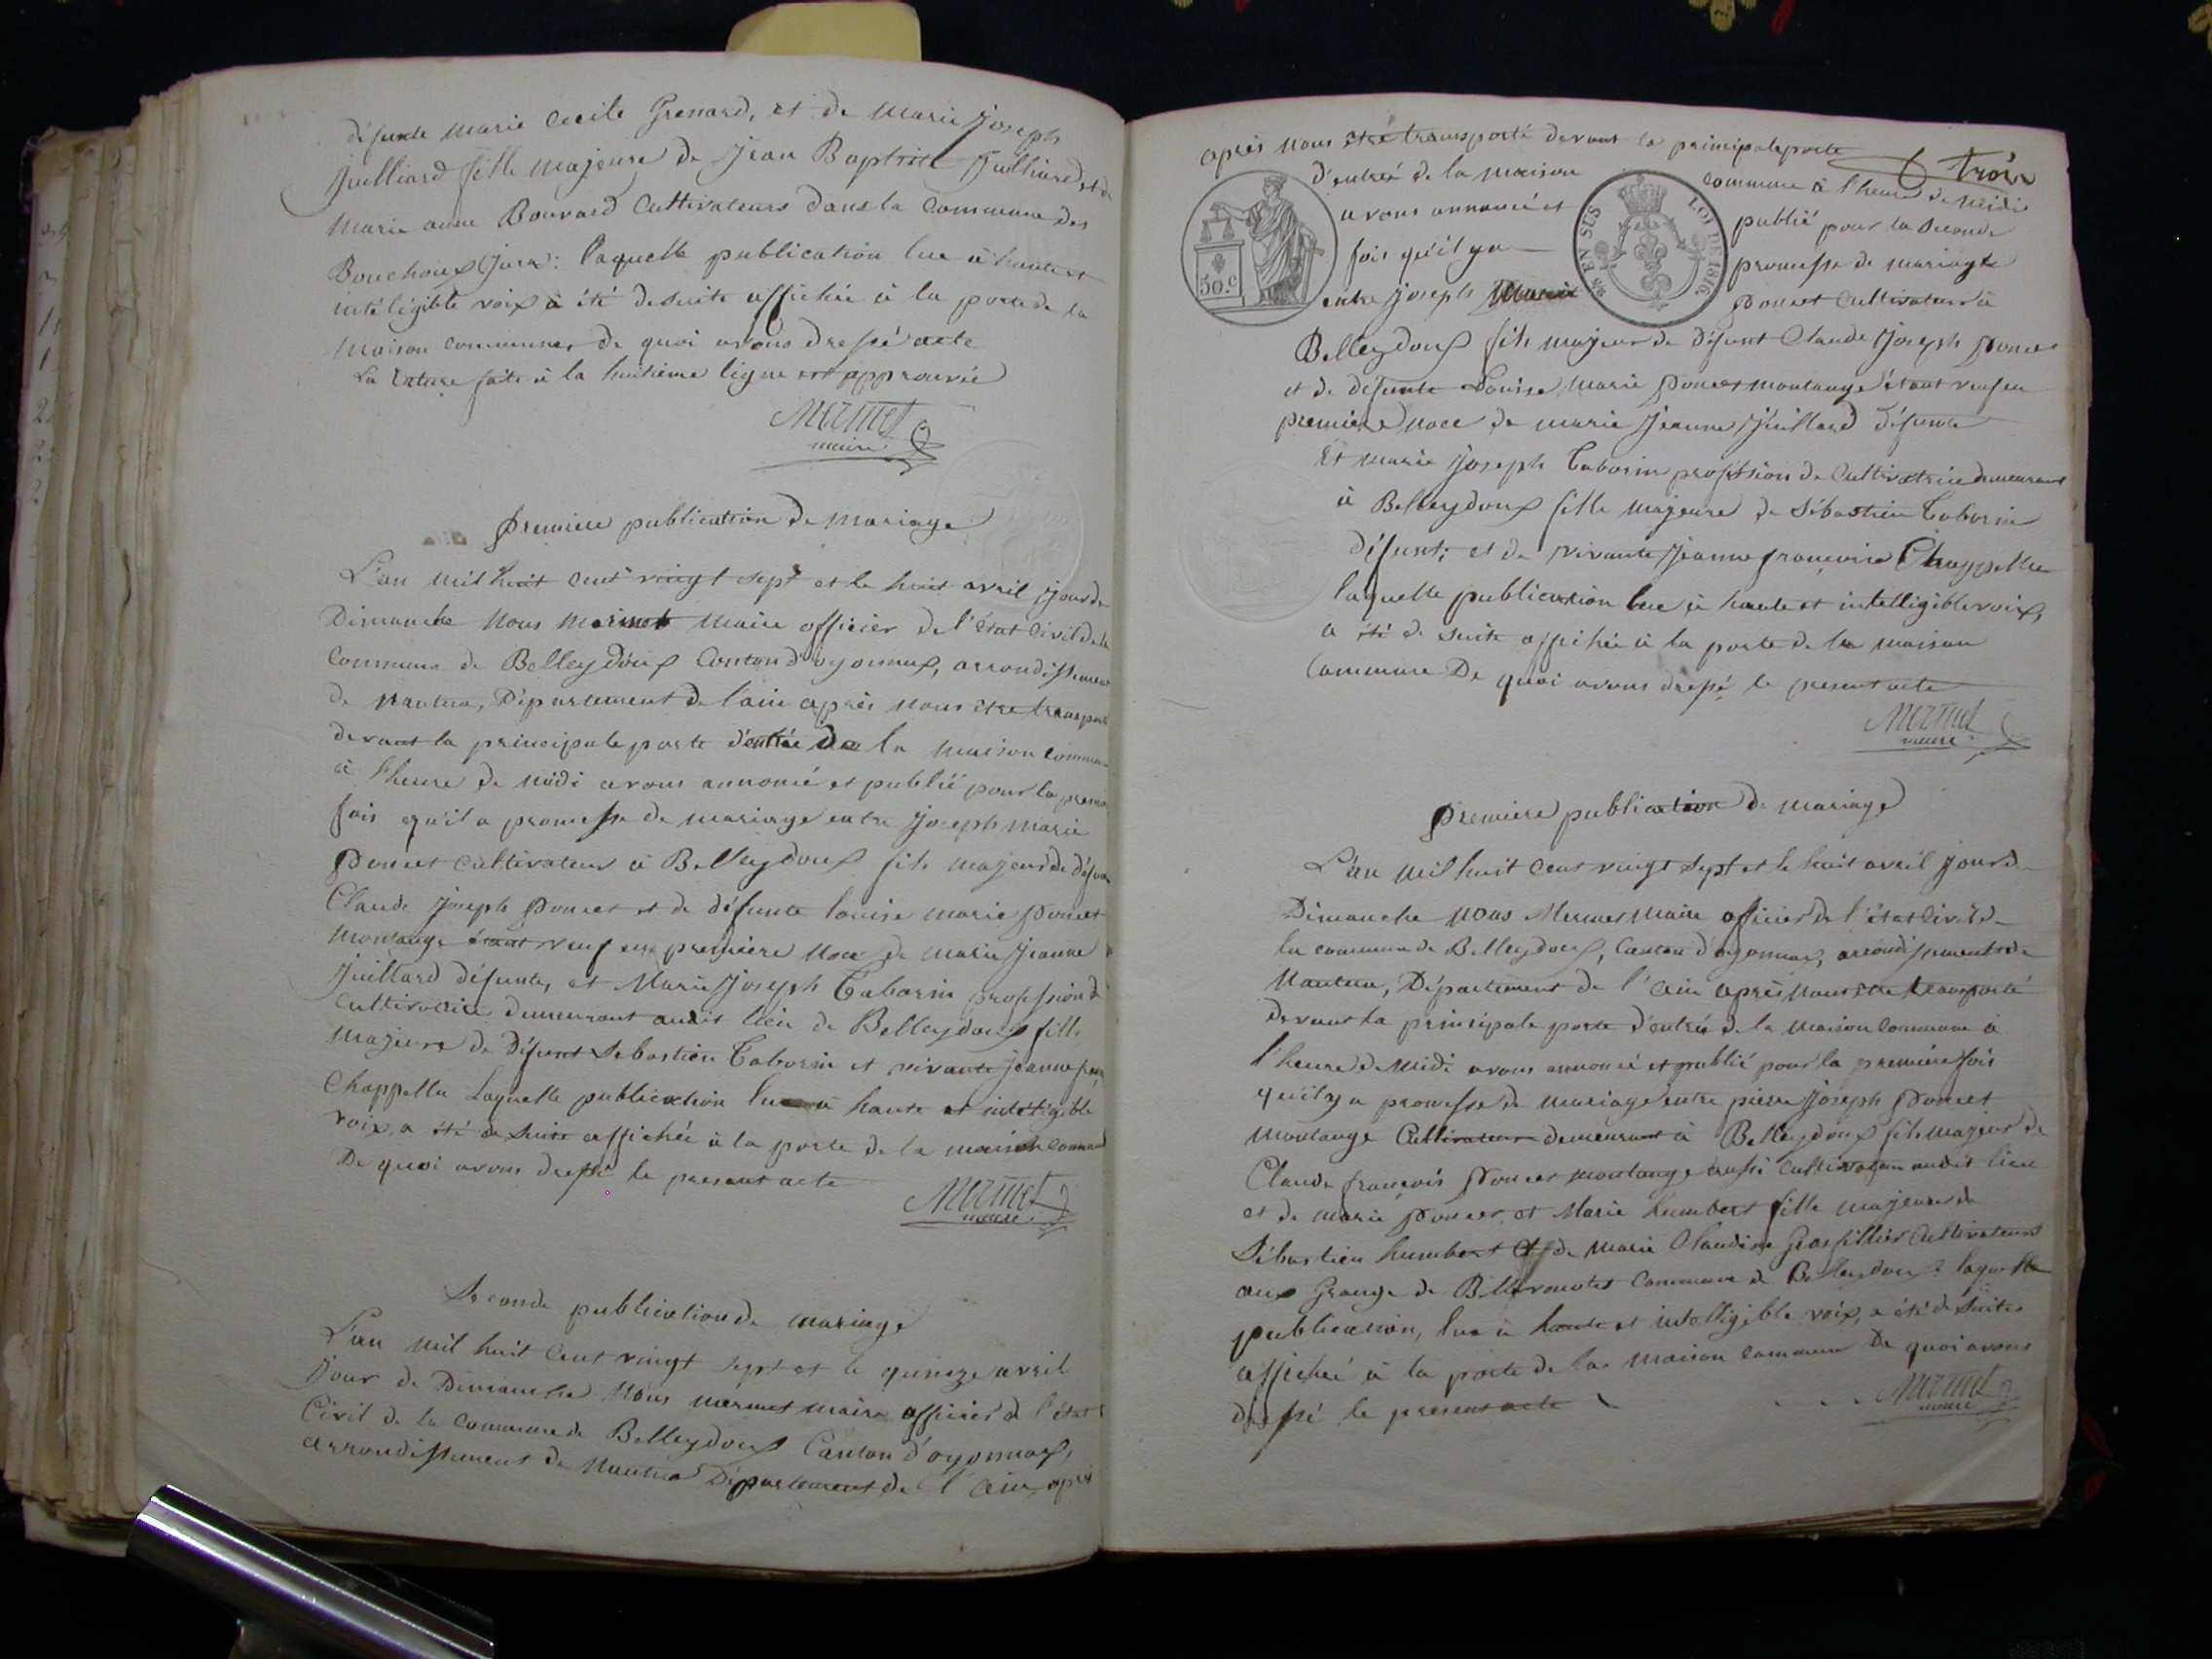 défunte Marie Cecile Grenard, et de Marie Joseph
Juilliard fille majeure de Jean Baptiste Juilliard et de
Marie anne Bouvard Cultivateurs dans la Commune des
Bouchoux (Jura): laquelle publication lue à haute et
intéligible voix a été de suite affichée à la porte de la
Maison commune de quoi avons dressé acte
La rature faite à la huitième ligne est approuvée
Mermet
maire
première publication de mariage
L'an mil huit cent vingt sept et le huit avril jour de
Dimanche Nous Mermet Maire officier de l'état Civil de la
Commune de Belleydoux Canton d'oyonnax, arrondissement
de Nantua, Département de l'ain après nous être transporté
devant la principale porte d'entrée de la maison commune
à l'heure de midi avons annoncé et publié pour la premiere
fois qu'il a promesse de mariage entre Joseph Marie
Poncet cultivateur à Belleydoux fils majeur de défunt
Claude Joseph Poncet et de défunte louise marie Poncet
Montange étant veuf en première noce de marie Jeanne
Juillard défunte, et Marie Joseph Taborin profession de
Cultivatrice demeurant audit lieu de Belleydoux fille
Majeure de Défunt Sebastien Taborin et vivante jeanne
Chappellu Laquelle publication lue à haute et intéligible
voix, a été de suite affichée à la porte de la maison commune
De quoi avons dressé le present acte
Mermet
maire
Seconde publication de mariage
L'an mil huit cent vingt sept et le quinze avril
Jour de Dimanche Nous mermet maire officier de l'état
Civil de la Commune de Belleydoux Canton d'oyonnax,
arrondissement de Nantua Département de l'ain, après
trois
après nous être transporté devant la principale porte
d'entrée de la maison commune à l'heure de midi
avons annoncé et publié pour la seconde
fois qu'il y a promesse de mariage
entre Joseph Marie Poncet Cultivateur à
50.C
25 EN SUS LOI DE 1816
Belleydoux fils majeur de Défunt Claude Joseph Poncet
et de défunte Louise Marie Poncet montange étant veuf en
première noce de marie Jeanne Juillard défunte
Et marie Joseph Taborin profession de Cultivatrice demeurant
à Belleydoux fille majeure de Sébastien Taborin
Défunt; et de vivante Jeanne françoise Chappellu
laquelle publication lue à haute et intelligible voix,
a été de suite affichée à la porte de la maison
Commune De quoi avons dressé le present acte
Mermet
maire
première publication de mariage
L'an mil huit cent vingt sept et le huit avril jour de
Dimanche Nous Mermet Maire officier de l'état Civil de
la commune de Belleydoux, Canton d'oyonnax, arrondissement de
Nantua, Département de l'ain après nous être transporté
Devant la principale porte d'entrée de la maison commune à
l'heure de Midi avons annoncé et publié pour la première fois
qu'il y a promesse de mariage entre pierre Joseph Poncet
Montange Cultivateur demeurant à Belleydoux fils majeur de
Claude françois Poncet montange aussi cultivateur audit lieu
et de marie Poncet, et Marie humbert fille majeure de
Sébastien humbert et de Marie Claudine Grosfillier Cultivateurs
aux Grange de Commune de Belleydoux: laquelle
publication, lue à haute et intelligible voix, a été de suite
affichée à la porte de la maison commune De quoi avons
dressé le présent acte
Mermet
maire